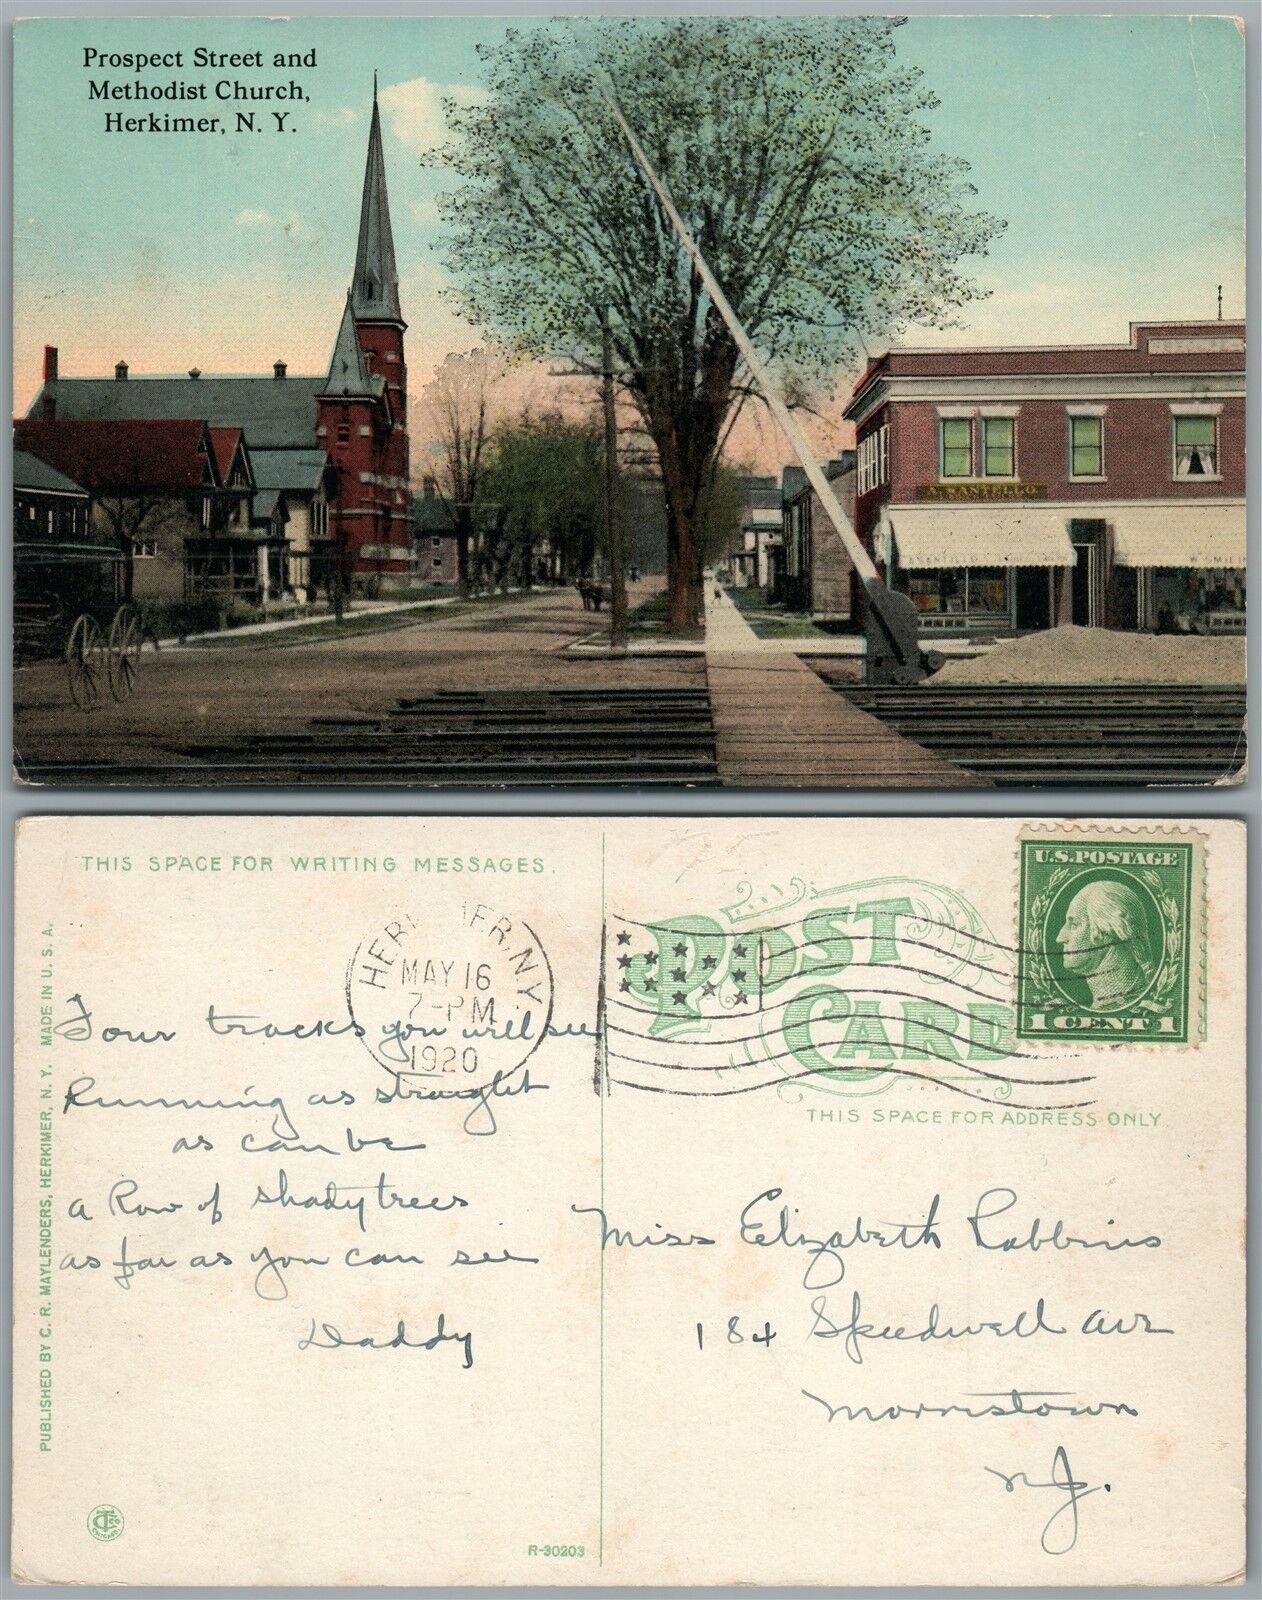 Prospect Street and
Methodist Church,
Herkimer, N. Y.
A. SANTELLO
THIS SPACE FOR WRITING MESSAGES.
PUBLISHED BY C. R. MAYLENDERS, HERKIMER, N. Y. MADE IN U. S. A.
HERKIMER, N.Y.
MAY 16
7-PM
1920
POST
CARD
U.S. POSTAGE
1 CENT 1
THIS SPACE FOR ADDRESS ONLY
Four tracks you will see
Running as straight
as can be
a Row of shady trees
as far as you can see
Daddy
Miss Elizabeth Robbins
184 Speedwell Ave
Morristown
N.J.
CHICAGO
R-30203